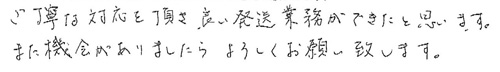 ご丁寧な対応を頂き良い発送業務ができたと思います。
また機会がありましたらよろしくお願い致します。